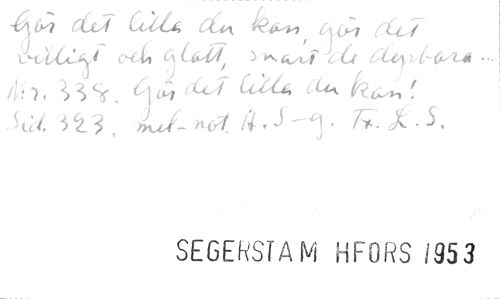 Gör det lilla du kan, gör det
villigt och glatt, snart de dyrbara...
Nr. 338. Gör det lilla du kan!
Sid. 323. mel-not. A. S-g. Tx. L. S.
SEGERSTAM HFORS 1953